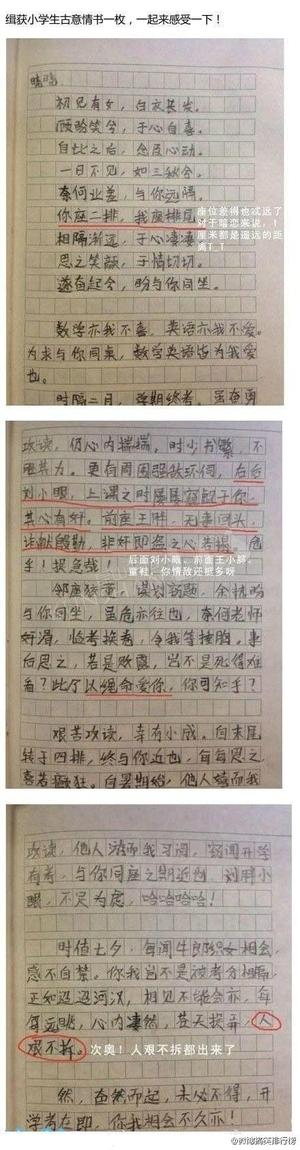 缉获小学生古意情书一枚，一起来感受一下！
晓晓
初见有女，白衣甚发。
顾盼笑兮，于心自喜。
自此之后，念及心动。
一日不见，如三秋兮。
奈何业差，与你远隔。
你座二排，我座排尾。
座位差得也忒远了
对于暗恋来说，1
厘米都是遥远的距
离T_T
相隔渐远，于心凄凄
思之笑颜，于情切切。
遂奋起兮，盼与你同坐。
数学亦我不喜，英语亦我不爱。
为求与你同桌，数学英语皆为我爱
也。
时隔二月，学期终考。虽奋勇
攻读，仍心内揣揣。时少书繁，不
更有周围强敌环伺，右后
刘小眼，上课之时屡屡
其心有奸。前座王胖，无事回头，
诸献殷勤，非奸即盗之心若揭。危
乎！提急哉！
后面刘小眼、前面王小胖。
童鞋，你情敌还挺多呀
与你同坐，虽危亦往也，奈何老师
奸滑，临考换卷，令我等捶胸。事
后思之，若是败露，岂不是死得难
看？此乃以绳命爱你，你可知乎？
艰苦攻读，幸有小成。自末尾
转于四排，终与你近也，每每思之
喜若癫狂。自暑期始，他人嬉而我
攻读，他人游而我习阅，窃闻开学
有考，与你同座之期近也，刘胖小
眼，不足为虑，哈哈哈哈！
时值七夕，每闻牛郎织女相会，
感不自禁。你我岂不是被考分相隔，
正如迢迢河汉，相见不能会亦，每
每远眺，心内凄然，苍天捉弄，人
艰不拆。
次奥！人艰不拆都出来了
然，奋然而起，未必不得，开
学考在即，你我相会不久亦！
@微博搞笑排行榜